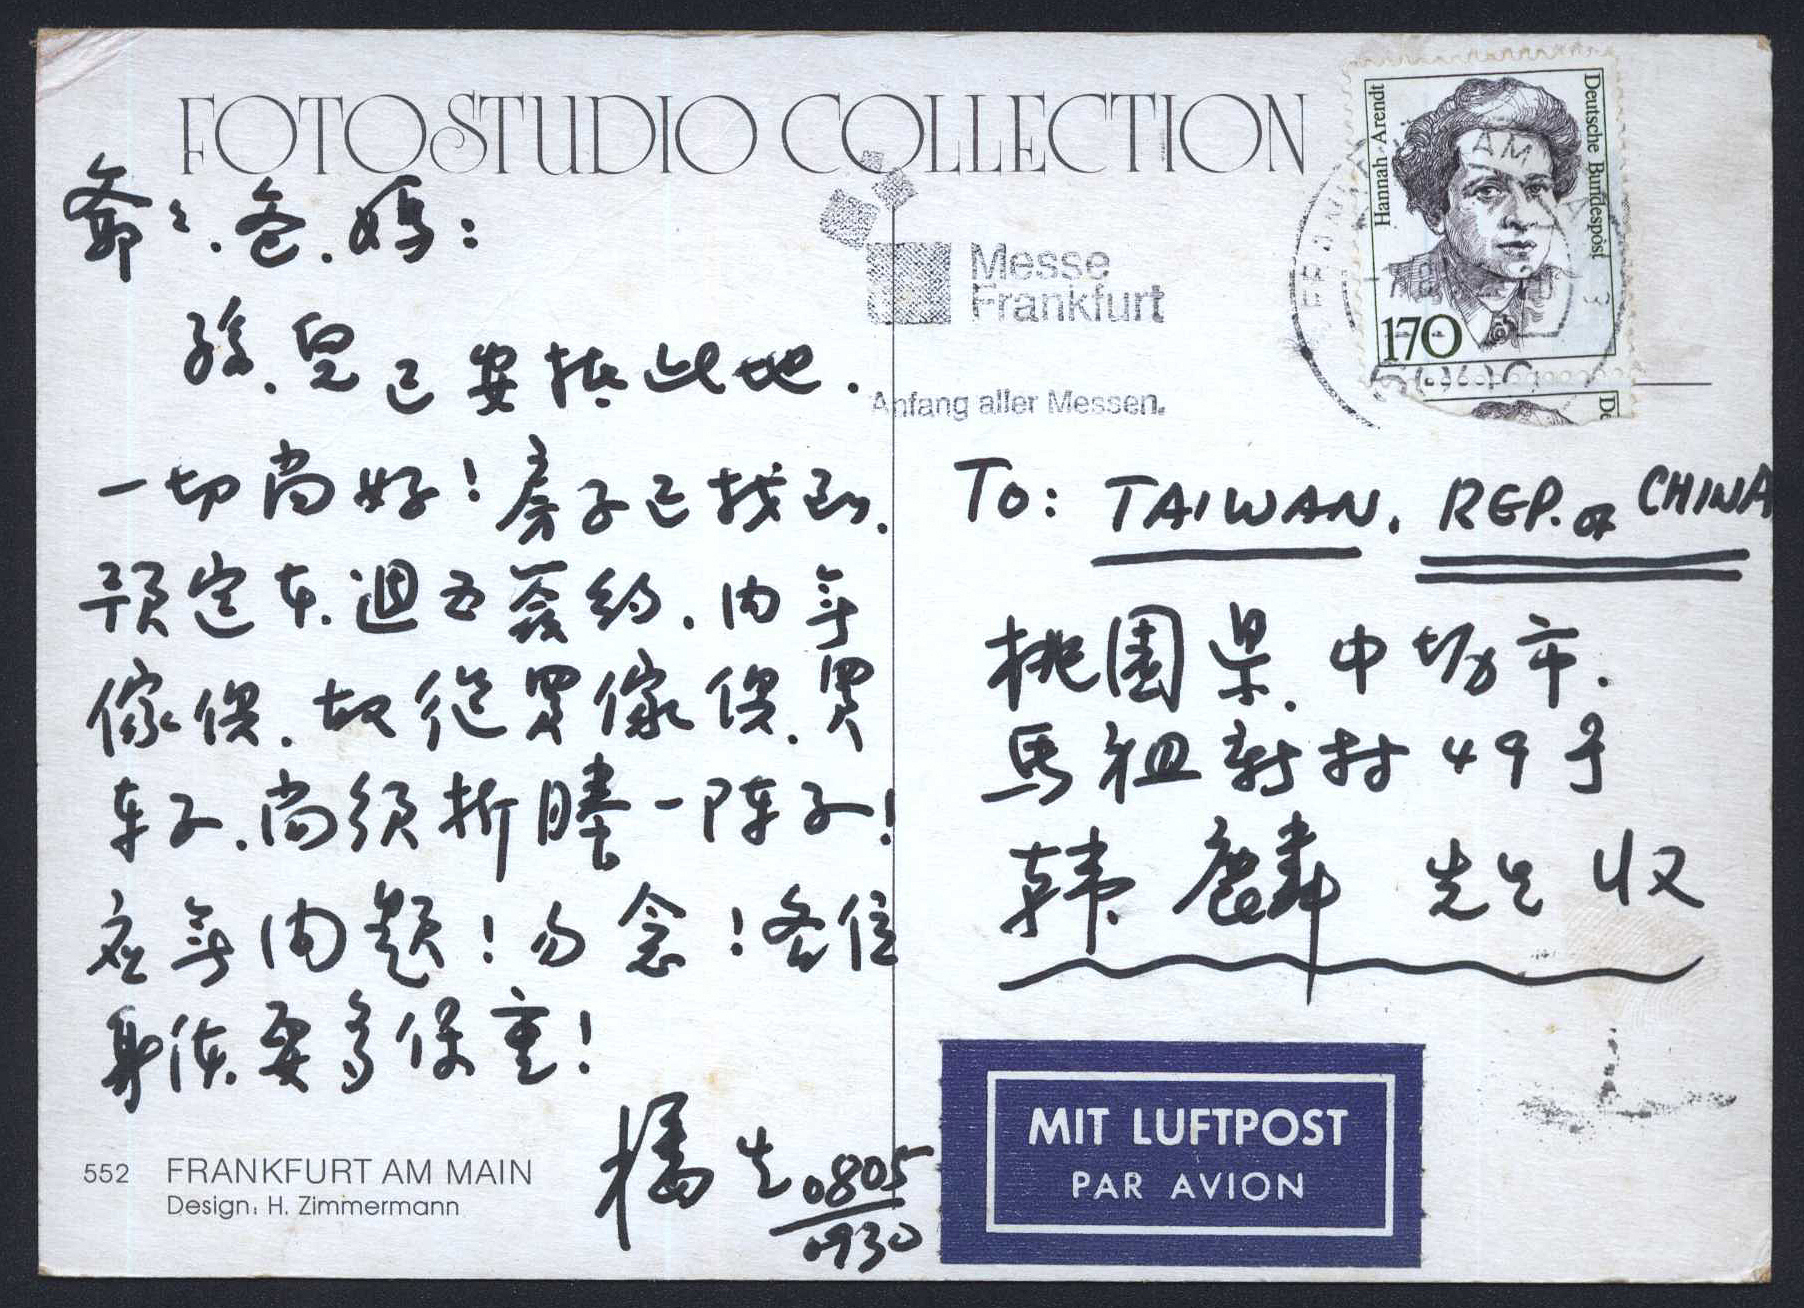 FOTOSTUDIO COLLECTION
爺々.爸.媽:
孫.兒已安抵此地.
一切尚好!房子已找到.
預定本週五簽約.内無
傢俱.故從買傢俱.買
車子.尚須折騰一陣子!
應無问題!勿念!各位
身体要多保重!
0805
0930
552 FRANKFURT AM MAIN
Design: H. Zimmermann
Messe
Frankfurt
Anfang aller Messen.
Hannah Arendt
Deutsche Bundespost
170
To: TAIWAN. REP. OF CHINA
桃園県.中坜市.
馬祖新村49号
韩麟先生收
MIT LUFTPOST
PAR AVION